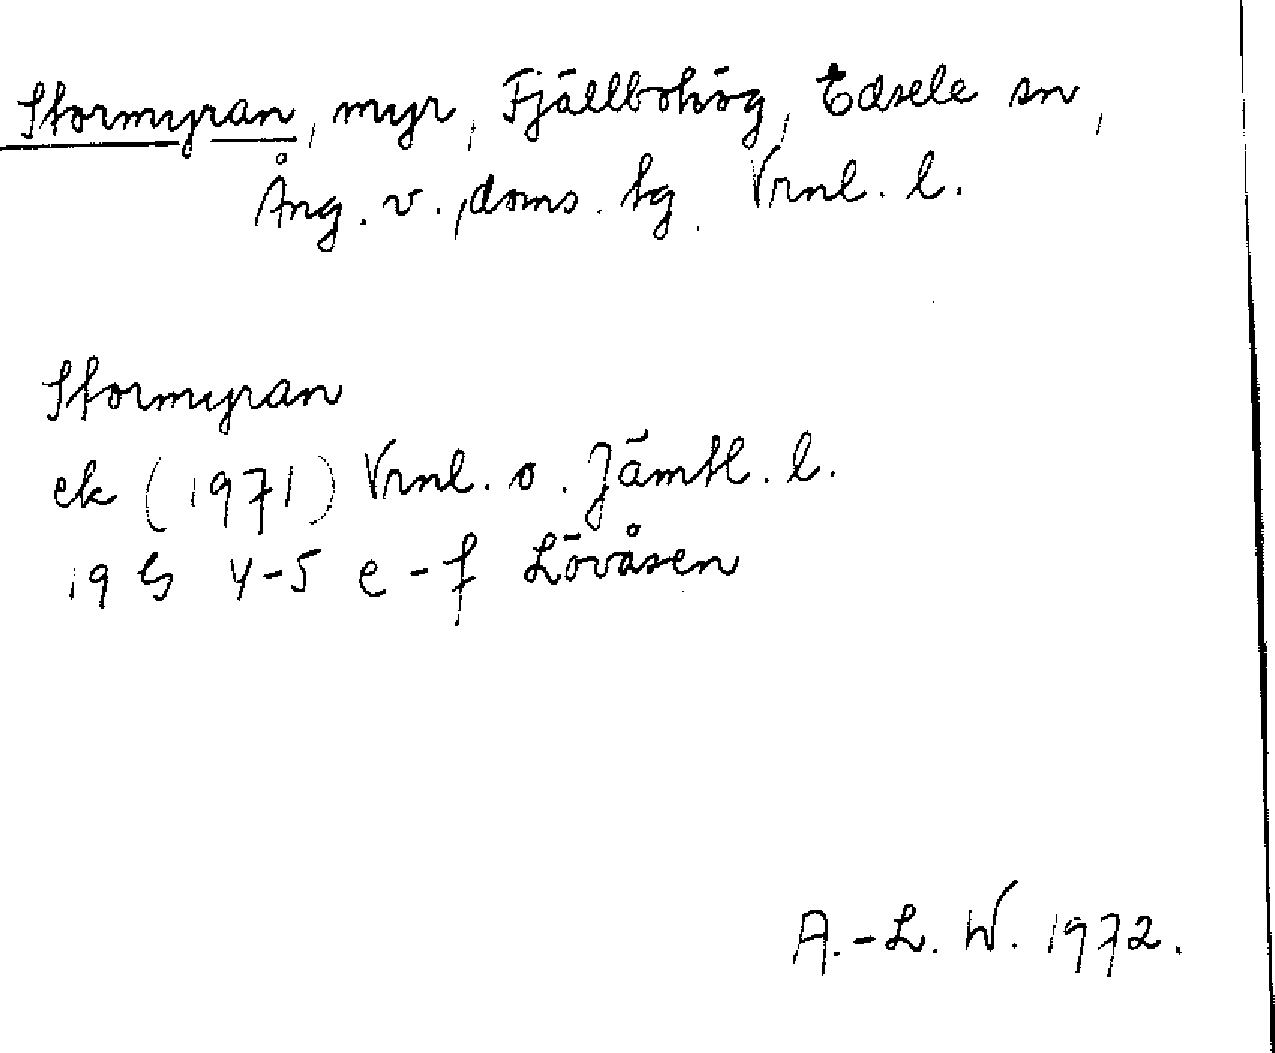 Stormyran, myr, Fjällbohög, Edsele sn,
Ång. v., doms. tg. Vrnl. l.
Stormyran
ek (1971) Vrnl. o. Jämtl. l.
19 G 4-5 e-f Lövåsen
A.-L. W. 1972.